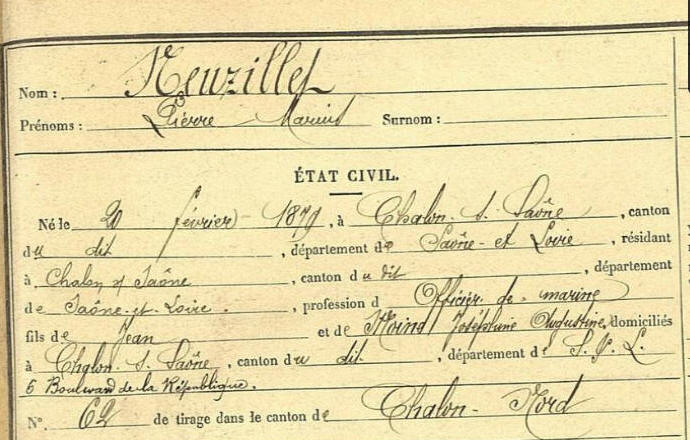 Nom : Neuzillet
Prénoms : Pierre Marius Surnom :
ÉTAT CIVIL.
Né le 20 février 1879, à Chalon s. Saône, canton
du dit, département de Saône-et-Loire, résidant
à Chalon s/ Saône, canton du dit, département
de Saône-et-Loire, profession d Officier de marine
fils de Jean et de Moine Joséphine Augustine, domiciliés
à Chalon s. Saône, canton du dit, département de S. & L.
6 Boulevard de la République.
N° 62 de tirage dans le canton de Chalon-Nord